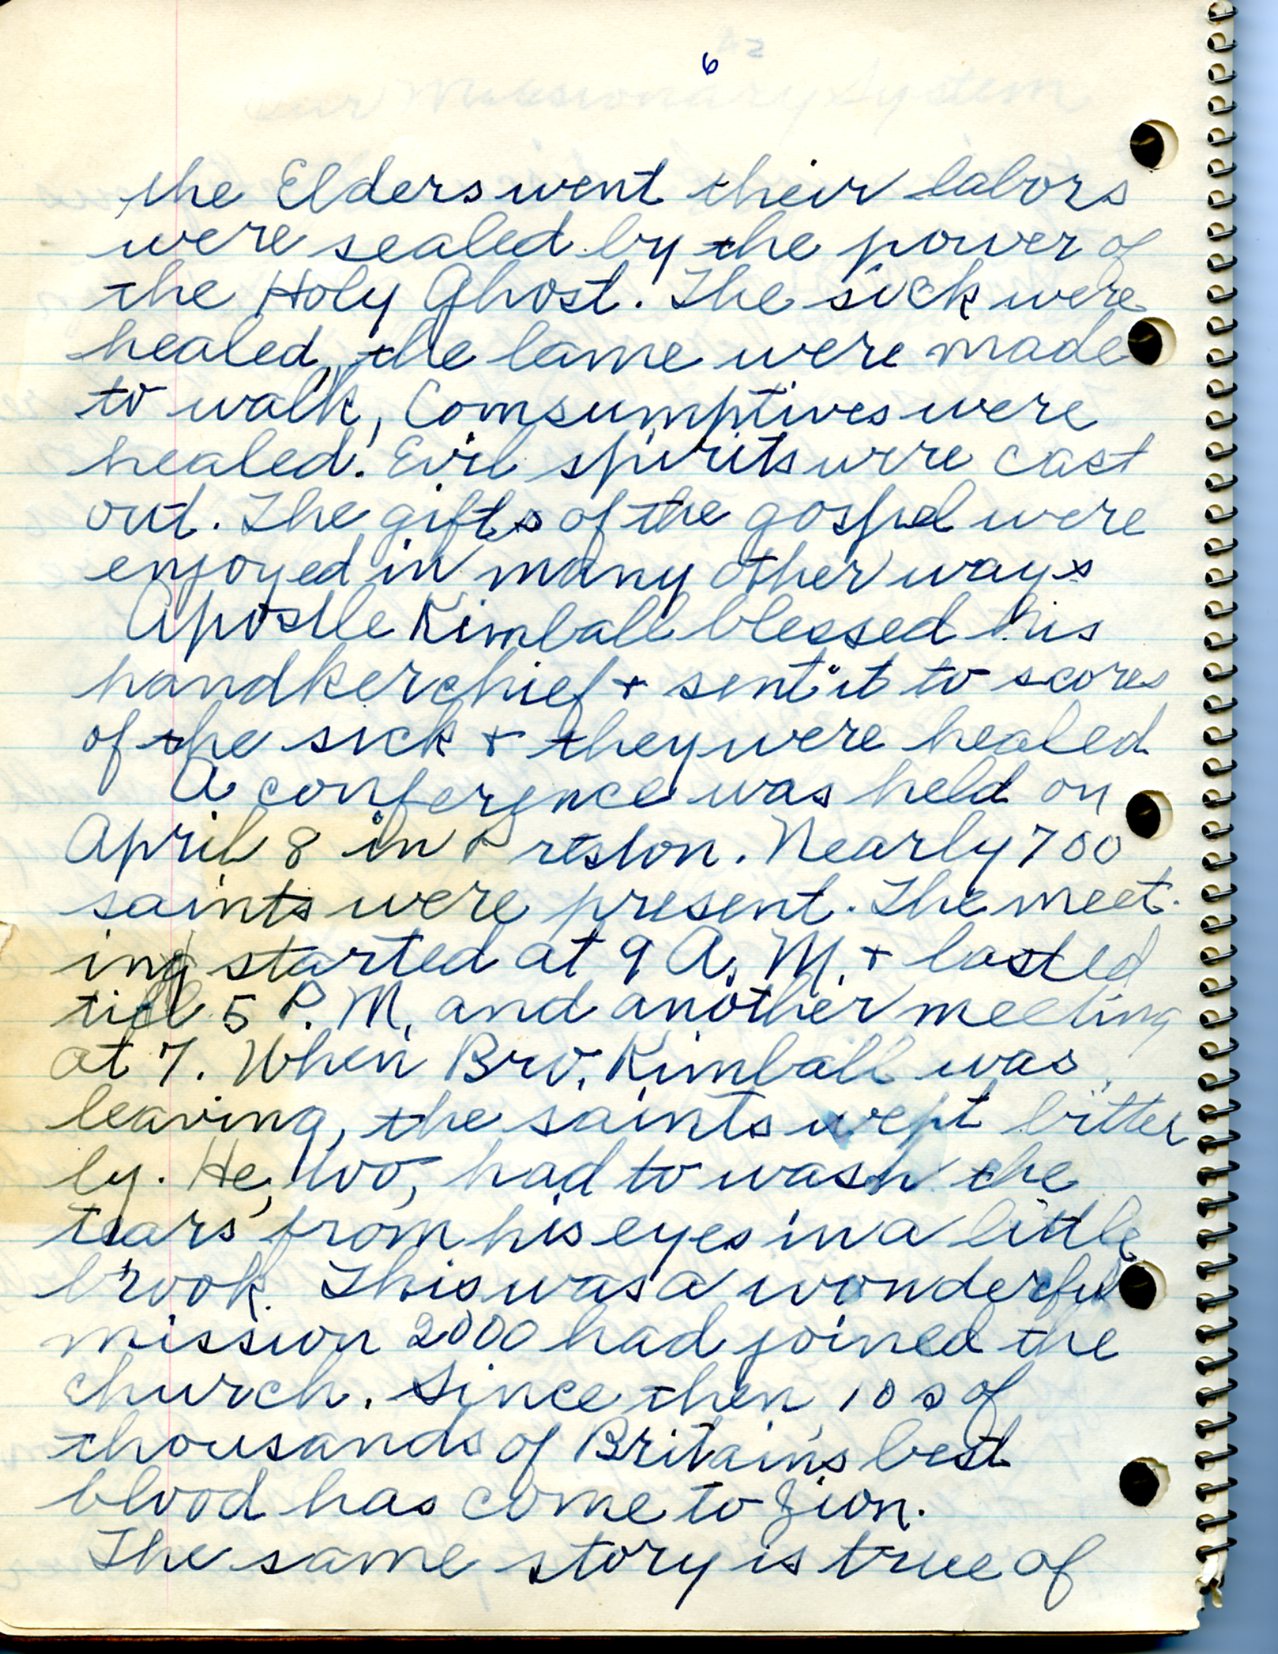 6
the Elders went their labors
were sealed by the power of
the Holy Ghost. The sick were
healed, the lame were made
to walk, Comsumptives were
healed. Evil spirits were cast
out. The gifts of the gospel were
enjoyed in many other ways
Apostle Kimball blessed his
handkerchief + sent it to scores
of the sick + they were healed
A conference was held on
April 8 in Preston. Nearly 700
saints were present. The meet-
ing started at 9 A. M. + lasted
till 5 P. M. and another meeting
at 7. When Bro. Kimball was
leaving, the saints wept bitter
ly. He, too, had to wash the
tears from his eyes in a little
brook. This was a wonderful
mission 2000 had joined the
church. Since then 10s of
thousands of Britain's best
blood has come to Zion.
The same story is true of